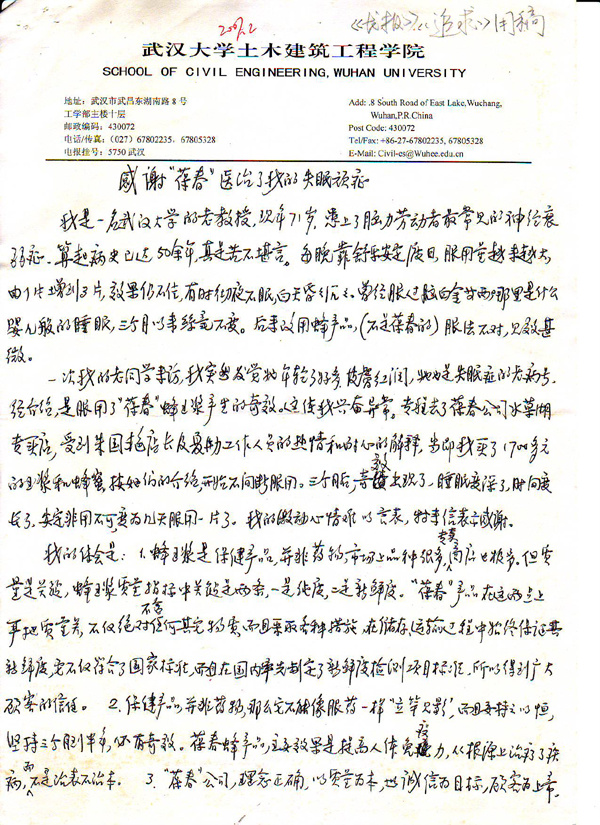 2007.2
《战报》《追求》用稿
武汉大学土木建筑工程学院
SCHOOL OF CIVIL ENGINEERING, WUHAN UNIVERSITY
地址：武汉市武昌东湖南路8号
工学部主楼十层
邮政编码：430072
电话/传真：(027) 67802235, 67805328
电报挂号：5750 武汉
Add: .8 South Road of East Lake,Wuchang,
Wuhan,P.R.China
Post Code: 430072
Tel/Fax: +86-27-67802235, 67805328
E-Mail: Civil-es@Wuhee.edu.cn
感谢“葆春”医治了我的失眠顽症
我是一名武汉大学的老教授，现年71岁，患上了脑力劳动者最常见的神经衰
弱症，算起病史已达50余年，真是苦不堪言。每晚靠舒乐安定度日，服用量越来越大，
由1片增到3片，效果仍不佳，有时彻夜不眠，白天昏。曾经服过脑白金廿两那里是什么
婴儿般的睡眠，三个月以来丝毫不变。后来改用蜂产品，(不是葆春的)服法不对，见效甚
微。
一次我的老同学来访，我突然发觉她年轻了好多，皮肤红润，她也是失眠症的老病号，
经介绍，是服用了“葆春”蜂王浆产生的奇效。这使我兴奋异常，专程去了葆春公司水果湖
专卖店，受到朱国艳店长及其助工作人员的热情和耐心的解释，当即我买了1700多元
的王浆和蜂蜜，按她们的介绍，开始不间断服用。三个月后，奇效出现了，睡眠变深了，时间变
长了，安定非用不可变为几天服用一片了。我的激动心情难以言表，特来信表示感谢。
我的体会是：1.蜂王浆是保健产品，并非药物，市场上品种很多，专卖商店也极多。但质
量是关键，蜂王浆质量指标中关键是两条，一是纯度，二是新鲜度。“葆春”产品在这两点上
严把质量关，不仅绝对不含任何其它物质，而且采取各种措施，在储存、运输过程中始终保证其
新鲜度，它不仅符合了国家标准，而且在国内率先制定了新鲜度检测项目标准，所以得到广大
顾客的信任。 2.保健产品并非药物，那么它不能像服药一样“立竿见影”，而且要持之以恒，
坚持三个月到半年，必有奇效。葆春蜂产品，主要效果是提高人体免疫力，从根源上治疗了疾
病，而不是治表不治本。 3.“葆春”公司，理念正确，以质量为本，以诚信为目标，顾客为上帝，